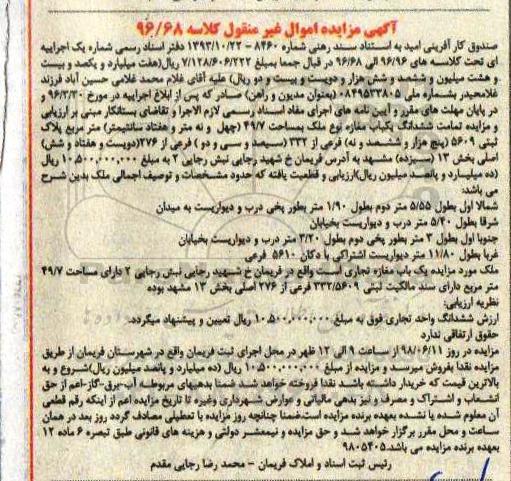 آگهی مزایده اموال غیر منقول کلاسه ۹۶/۶۸
صندوق کار آفرینی امید به استناد سند رهنی شماره ۸۴۶۰ - ۱۳۹۳/۱۰/۲۲ دفتر اسناد رسمی شماره یک اجراییه
ای تحت کلاسه های ۹۶/۹۶ الی ۹۶/۶۸ در قبال جمعا بمبلغ ۷/۱۲۸/۶۰۶/۲۲۲ ریال(هفت میلیارد و یکصد و بیست
و هشت میلیون و ششصد و شش هزار و دویست و بیست و دو ریال) علیه آقای غلام محمد غلامی حسین آباد فرزند
غلامحیدر بشماره ملی ۰۸۴۹۵۳۳۸۰۵ (بعنوان مدیون و راهن) صادر که پس از ابلاغ اجراییه در مورخ ۹۶/۳/۳۰ و
در پایان مهلت های مقرر و آیین نامه های اجرای مفاد اسناد رسمی لازم الاجرا و تقاضای بستانکار مبنی بر ارزیابی
و مزایده تمامت ششدانگ یکباب مغازه نوع ملک بمساحت ۴۹/۷ (چهل و نه متر و هفتاد سانتیمتر) متر مربع پلاک
ثبتی ۵۶۰۹ (پنج هزار و ششصد و نه) فرعی از ۳۳۲ (سیصد و سی و دو ) فرعی از ۲۷۶(دویست و هفتاد و شش)
اصلی بخش ۱۳ (سیزده) مشهد به آدرس فریمان خ شهید رجایی نبش رجایی ۲ به مبلغ ۱۰,۵۰۰,۰۰۰,۰۰۰ ریال
(ده میلیارد و پانصد میلیون ریال)ارزیابی و قطعیت یافته که حدود مشخصات و توصیف اجمالی ملک بدین شرح
می باشد:
شمالا اول بطول ۵/۵۵ متر دوم بطول ۱/۹۰ متر بطور پخی درب و دیواریست به میدان
شرقا بطول ۵/۴۰ متر درب و دیواریست بخیابان
جنوبا اول بطول ۳ متر بطور پخی دوم بطول ۳/۲۰ متر درب و دیواریست بخیابان
غربا بطول ۱۱/۸۰ متر دیواریست اشتراکی با دکان ۵۶۱۰ فرعی
ملک مورد مزایده یک باب مغازه تجاری است واقع در فریمان خ شهید رجایی نبش رجایی ۲ دارای مساحت ۴۹/۷
متر مربع دارای سند مالکیت ثبتی ۳۳۲/۵۶۰۹ فرعی از ۲۷۶ اصلی بخش ۱۳ مشهد بوده
نظریه ارزیابی:
ارزش ششدانگ واحد تجاری فوق به مبلغ ۱۰,۵۰۰,۰۰۰,۰۰۰ ریال تعیین و پیشنهاد میگردد.
حقوق ارتفاقی ندارد
مزایده در روز ۹۸/۰۶/۱۱ از ساعت ۹ الی ۱۲ ظهر در محل اجرای ثبت فریمان واقع در شهرستان فریمان از طریق
مزایده نقدا بفروش میرسد و مزایده از مبلغ ۱۰,۵۰۰,۰۰۰,۰۰۰ ریال (ده میلیارد و پانصد میلیون ریال)شروع و به
بالاترین قیمت که خریدار داشته باشد نقدا فروخته خواهد شد ضمنا بدهیهای مربوطه آب-برق-گاز-اعم از حق
انشعاب و اشتراک و مصرف و نیز بدهی مالیاتی و عوارض شهرداری وغیره تا تاریخ مزایده اعم از اینکه رقم قطعی
آن معلوم شده یا نشده بعهده برنده مزایده است،ضمنا چنانچه روز مزایده با تعطیلی مصادف گردد روز بعد در همان
ساعت و محل مقرر برگزار خواهد شد و حق مزایده و نیمعشر دولتی و هزینه های قانونی طبق تبصره ۶ ماده ۱۲
بعهده برنده مزایده می باشد.۹۸۰۵۴۰۵
رئیس ثبت اسناد و املاک فریمان - محمد رضا رجایی مقدم